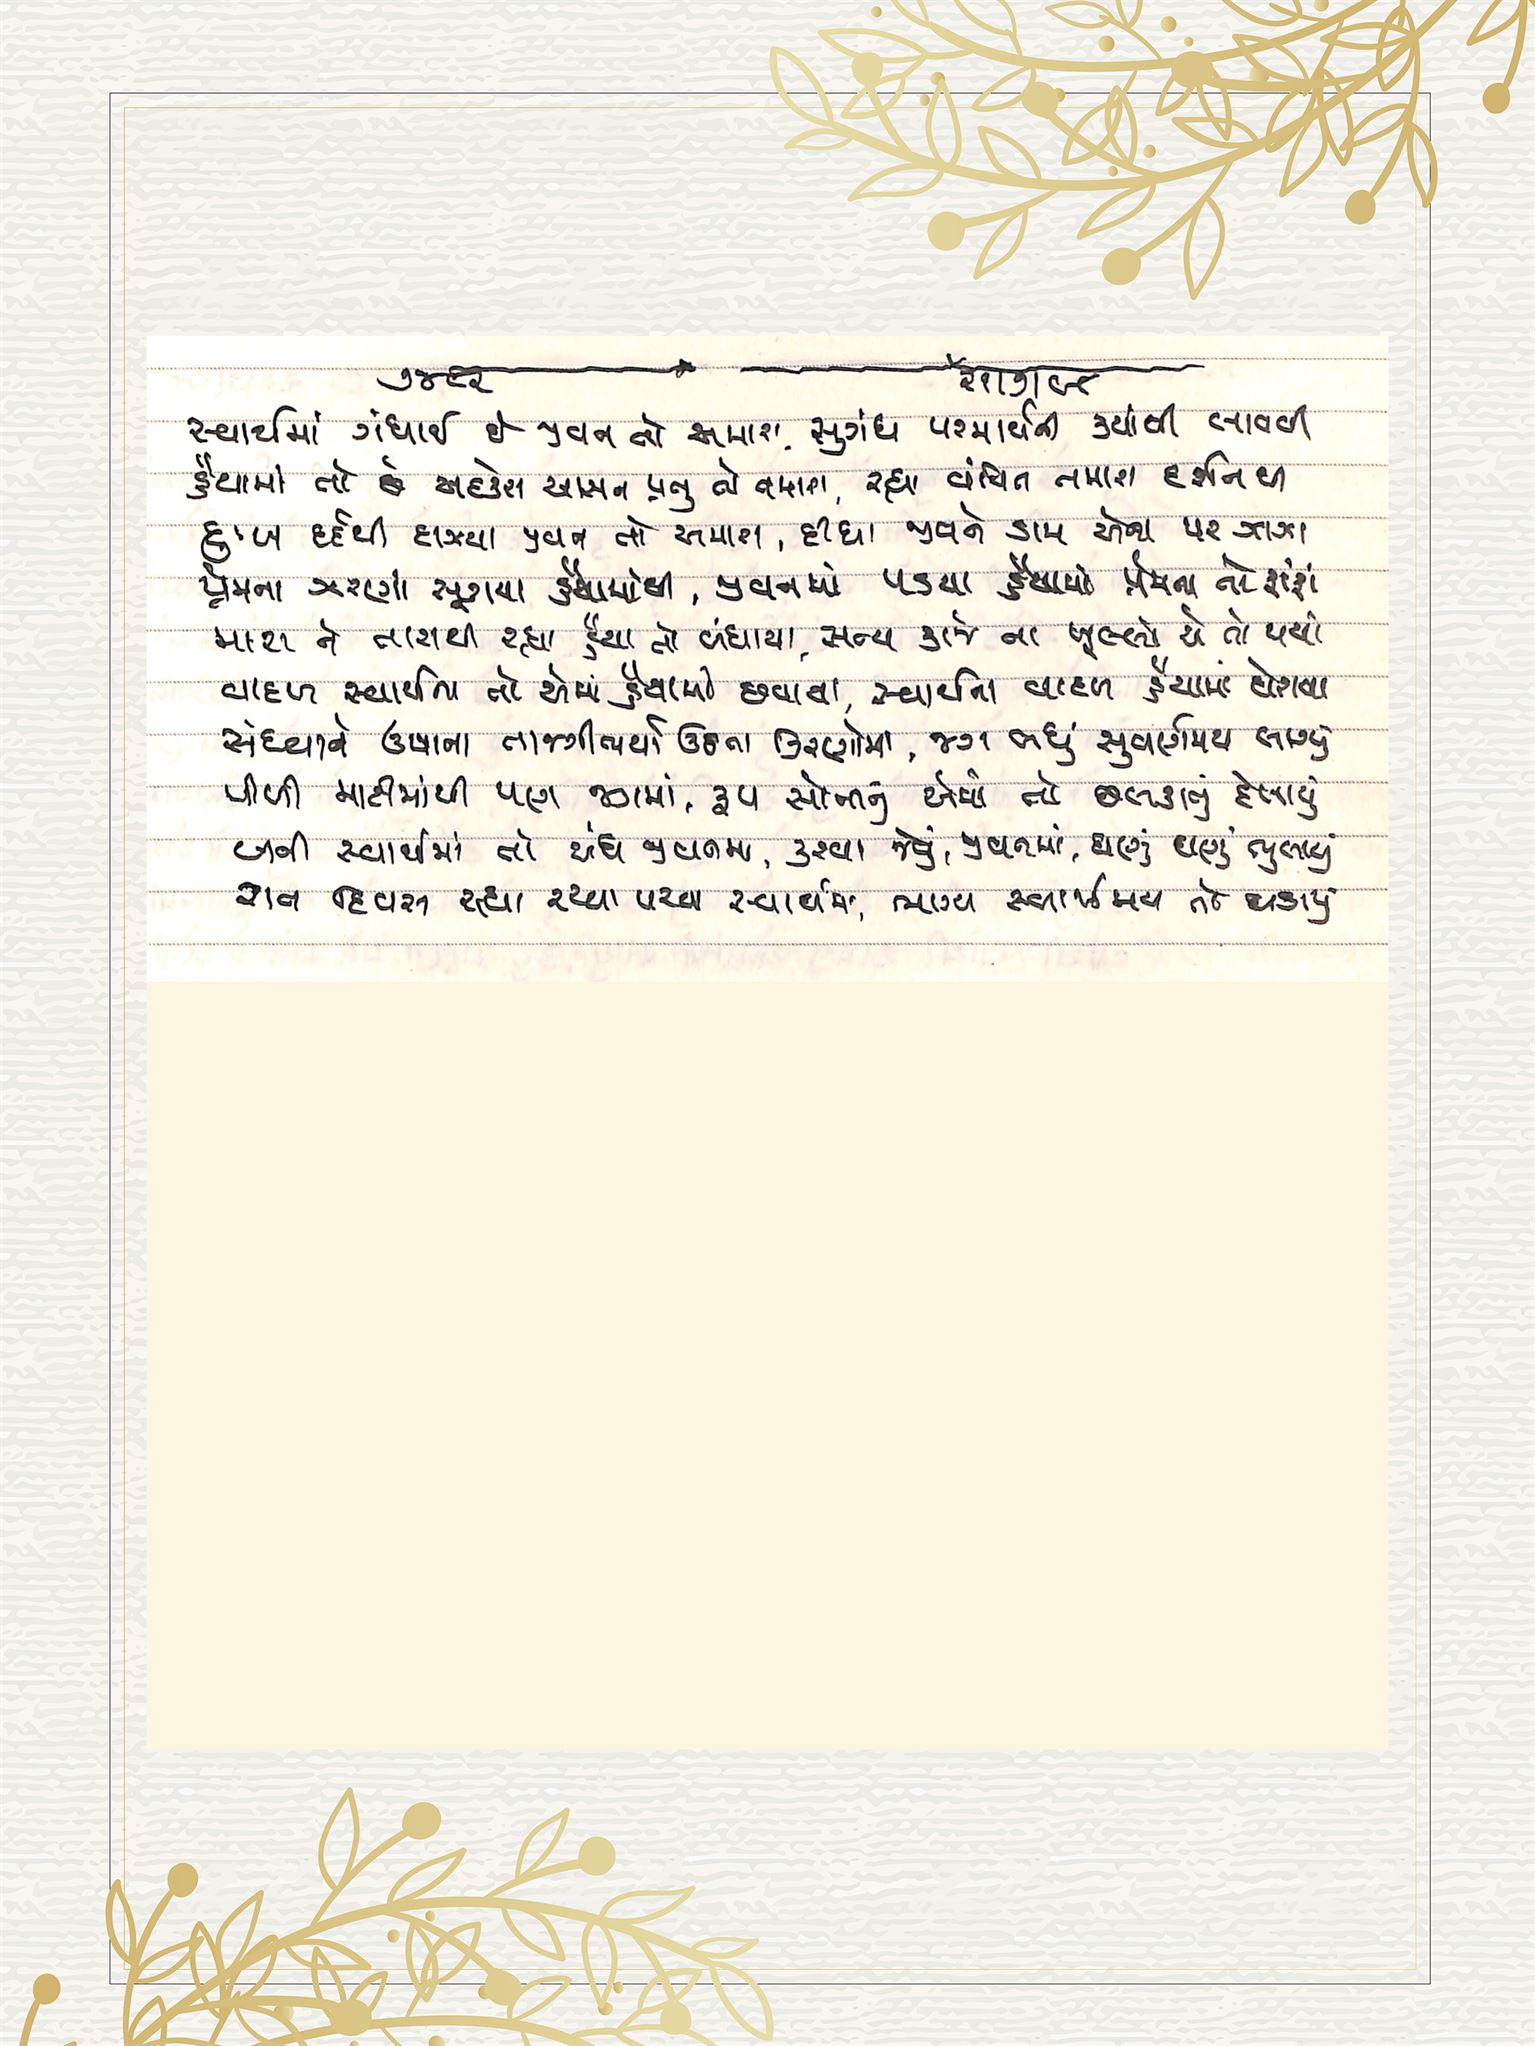 ૭૪૯૨
સ્વાર્થમાં ગંધાઈ છે જીવન તો અમારા, સુગંધ પરમાર્થની ક્યાંથી લાવવી
હૈયામાં તો છે આસન પ્રભુ તો તમારા, રહ્યા વંચિત તમારા દર્શનથી
દુઃખ દર્દથી દાઝ્યા જીવન તો અમારા, દીધા જીવને ડામ એના પર ઝાઝા
પ્રેમના ઝરણાં સૂકાયા હૈયામાંથી, જીવનમાં પડયા હૈયામાં પ્રેમના તો સાંસાં
મારા ને તારાથી રહ્યા હૈયા તો બંધાયા, સત્ય કાજે ના ખૂલ્લો એ તો થયો
વાદળ સ્વાર્થના તો એમાં હૈયામાં છવાયા, સ્વાર્થના વાદળ હૈયામાં ઘેરાયા
સંધ્યાને ઉષાના તાજગીભર્યા ઉઠતા કિરણોમાં, જગ બધું સુવર્ણમય લાગ્યું
પીળી માટીમાંથી પણ જગમાં, રૂપ સોનાનું એમાં તો છલકાતું દેખાયું
બની સ્વાર્થમાં તો અંધ જીવનમાં, કરવા જેવું, જીવનમાં, ઘણું ઘણું ભુલાયું
રાત દિવસ રહ્યા રચ્યા પચ્યા સ્વાર્થમાં, ભાગ્ય સ્વાર્થમય તો ઘડાયું